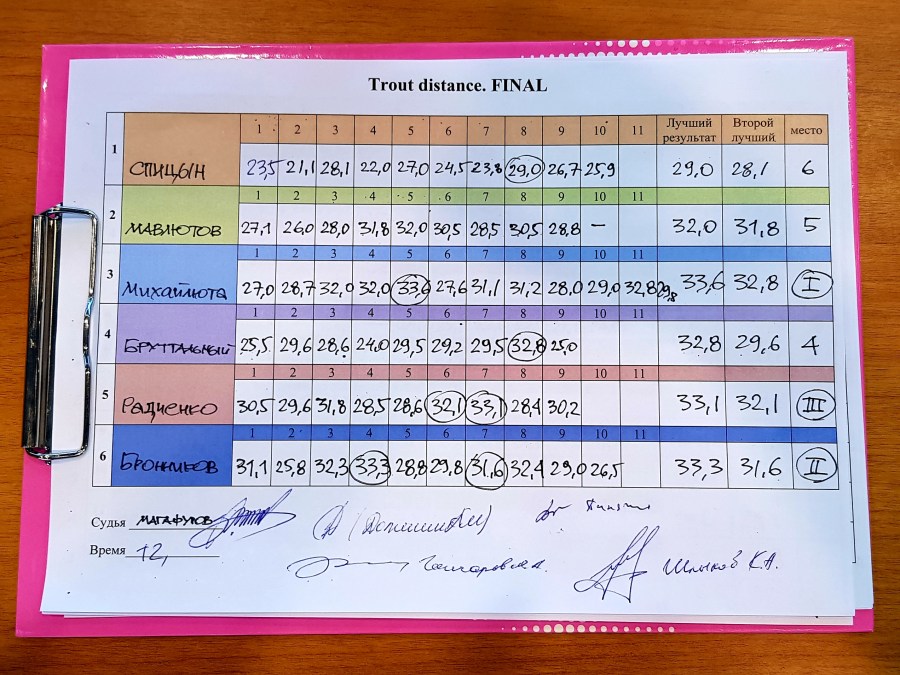 Trout distance. FINAL
1 2 3 4 5 6 7 8 9 10 11 Лучший результат Второй лучший место
1 СПИЦЫН 23,5 21,1 28,1 22,0 27,0 24,5 23,8 29,0 26,7 25,9 29,0 28,1 6
1 2 3 4 5 6 7 8 9 10 11
2 МАВЛЮТОВ 27,1 26,0 28,0 31,8 32,0 30,5 28,5 30,5 28,8 — 32,0 31,8 5
1 2 3 4 5 6 7 8 9 10 11
3 МИХАЙЛЮТА 27,0 28,7 32,0 32,0 33,6 27,6 31,1 31,2 28,0 29,0 32,8 29,8 33,6 32,8 I
1 2 3 4 5 6 7 8 9 10 11
4 БРУТТАЛЬНЫЙ 25,5 29,6 28,6 24,0 29,5 29,2 29,5 32,8 25,0 32,8 29,6 4
1 2 3 4 5 6 7 8 9 10 11
5 РАДИЕНКО 30,5 29,6 31,8 28,5 28,6 32,1 33,1 28,4 30,2 33,1 32,1 III
1 2 3 4 5 6 7 8 9 10 11
6 БРОННИКОВ 31,1 25,8 32,3 33,3 28,8 29,8 31,6 32,4 29,0 26,5 33,3 31,6 II
Судья МАГАФУРОВ
Время 12,
Шлыков К.А.